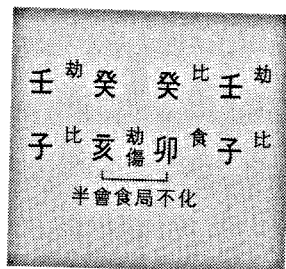 壬 劫 癸 癸 比 壬 劫
子 比 亥 劫傷 卯 食 子 比
半會食局不化